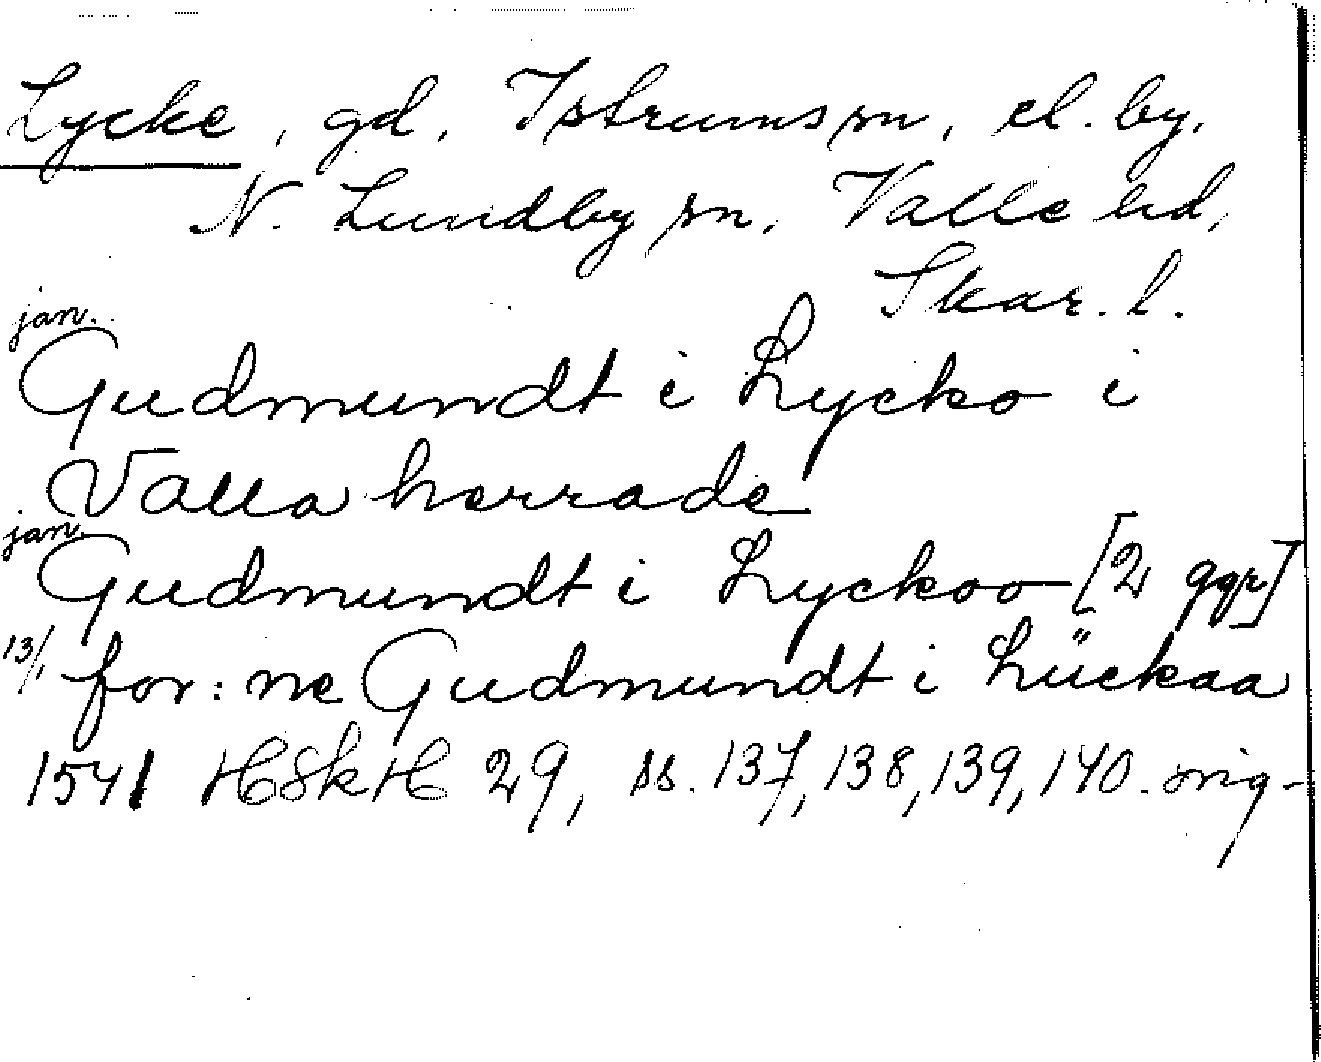 Lycke, gd, Istrums sn, el. by,
N. Lundby sn, Valle hd,
Skar. l.
jan.
Gudmundt i Lycko i
Valla herrade
jan.
Gudmundt i Lyckoo [2 ggr]
13/1 for: ne Gudmundt i Lückaa
1541 HSkH 29, ss. 137, 138, 139, 140. orig-